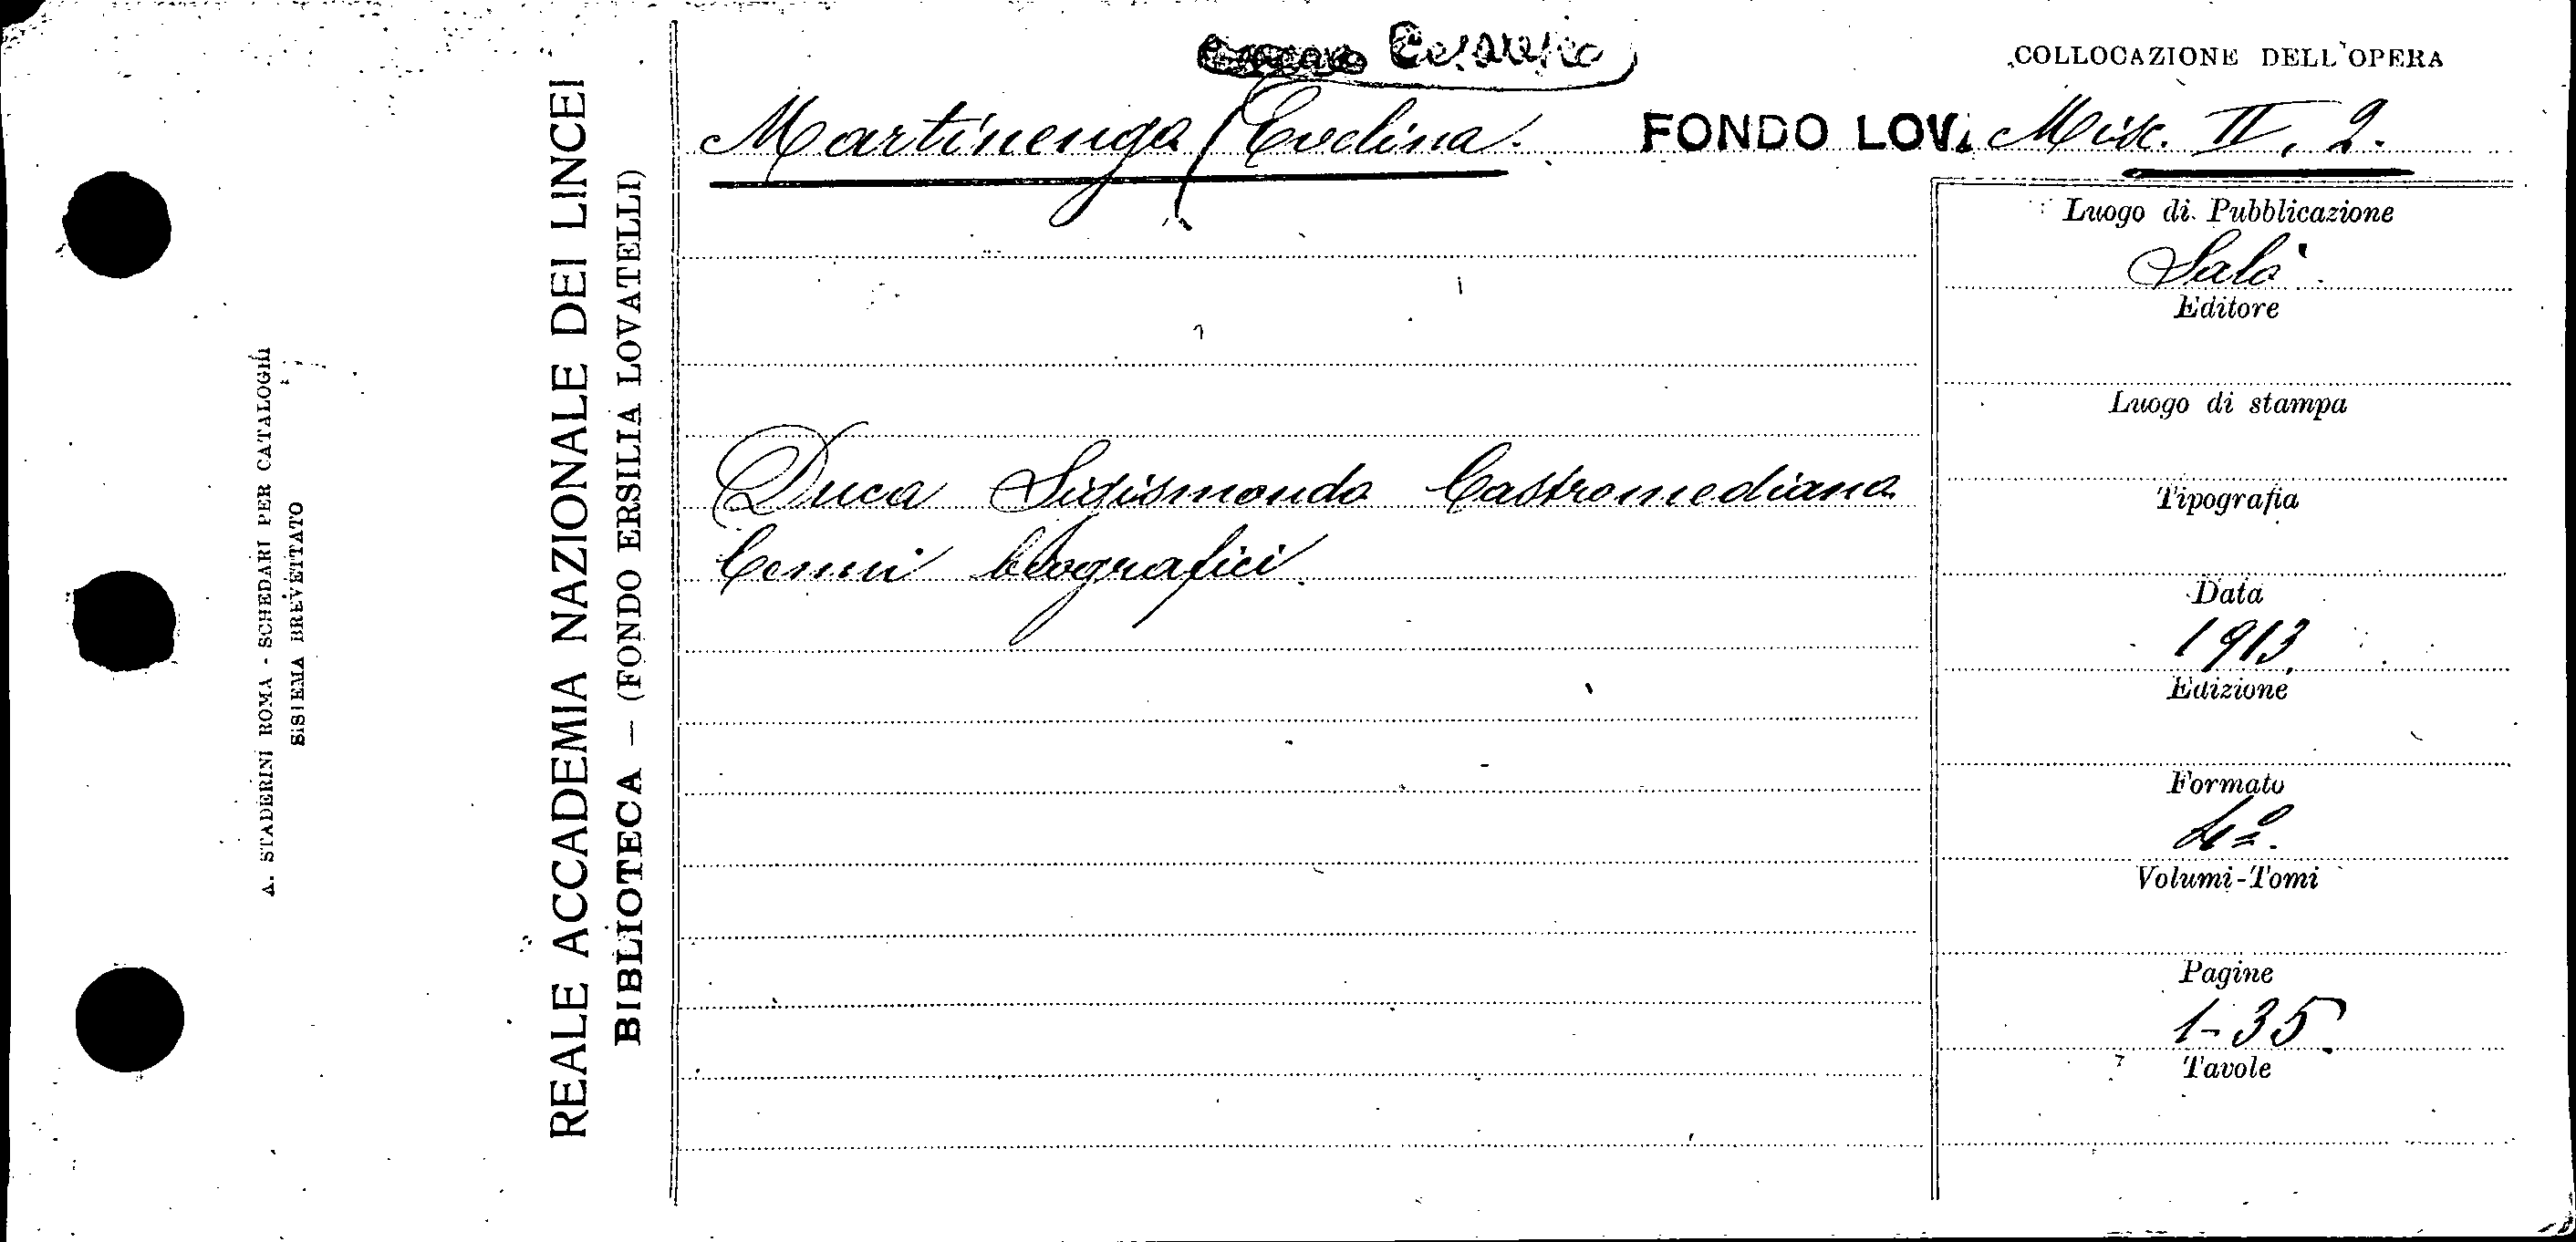 A. STADERINI ROMA - SCHEDARI PER CATALOGHI
SISTEMA BREVETTATO
REALE ACCADEMIA NAZIONALE DEI LINCEI
BIBLIOTECA — (FONDO ERSILIA LOVATELLI)
Cesaresco
Martinengo Evelina.
FONDO LOV.
COLLOCAZIONE DELL'OPERA
Misc. II, 2.
Duca Sigismondo Castromediano
Cenni biografici.
Luogo di Pubblicazione
Salò
Editore
Luogo di stampa
Tipografia
Data
1913.
Edizione
Formato
4º.
Volumi-Tomi
Pagine
1-35.
Tavole